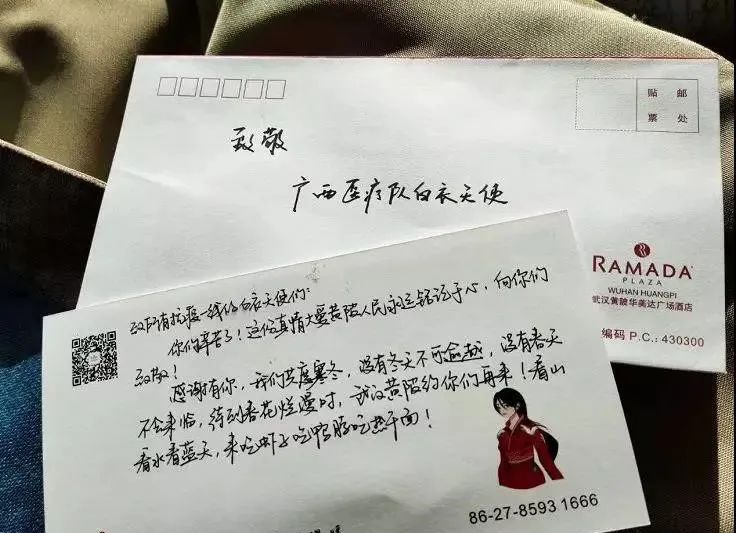 贴 邮
票 处
致敬
广西医疗队白衣天使
RAMADA
PLAZA
WUHAN HUANGPI
武汉黄陂华美达广场酒店
编码 P.C.: 430300
致所有抗疫一线的白衣天使们:
你们辛苦了!这份真情大爱黄陂人民永远铭记于心,向你们
致敬!
感谢有你,我们共度寒冬,没有冬天不可逾越,没有春天
不会来临,待到春花烂漫时,武汉黄陂约你们再来!看山
看水看蓝天,来吃虾子吃鸭脖吃热干面!
86-27-8593 1666